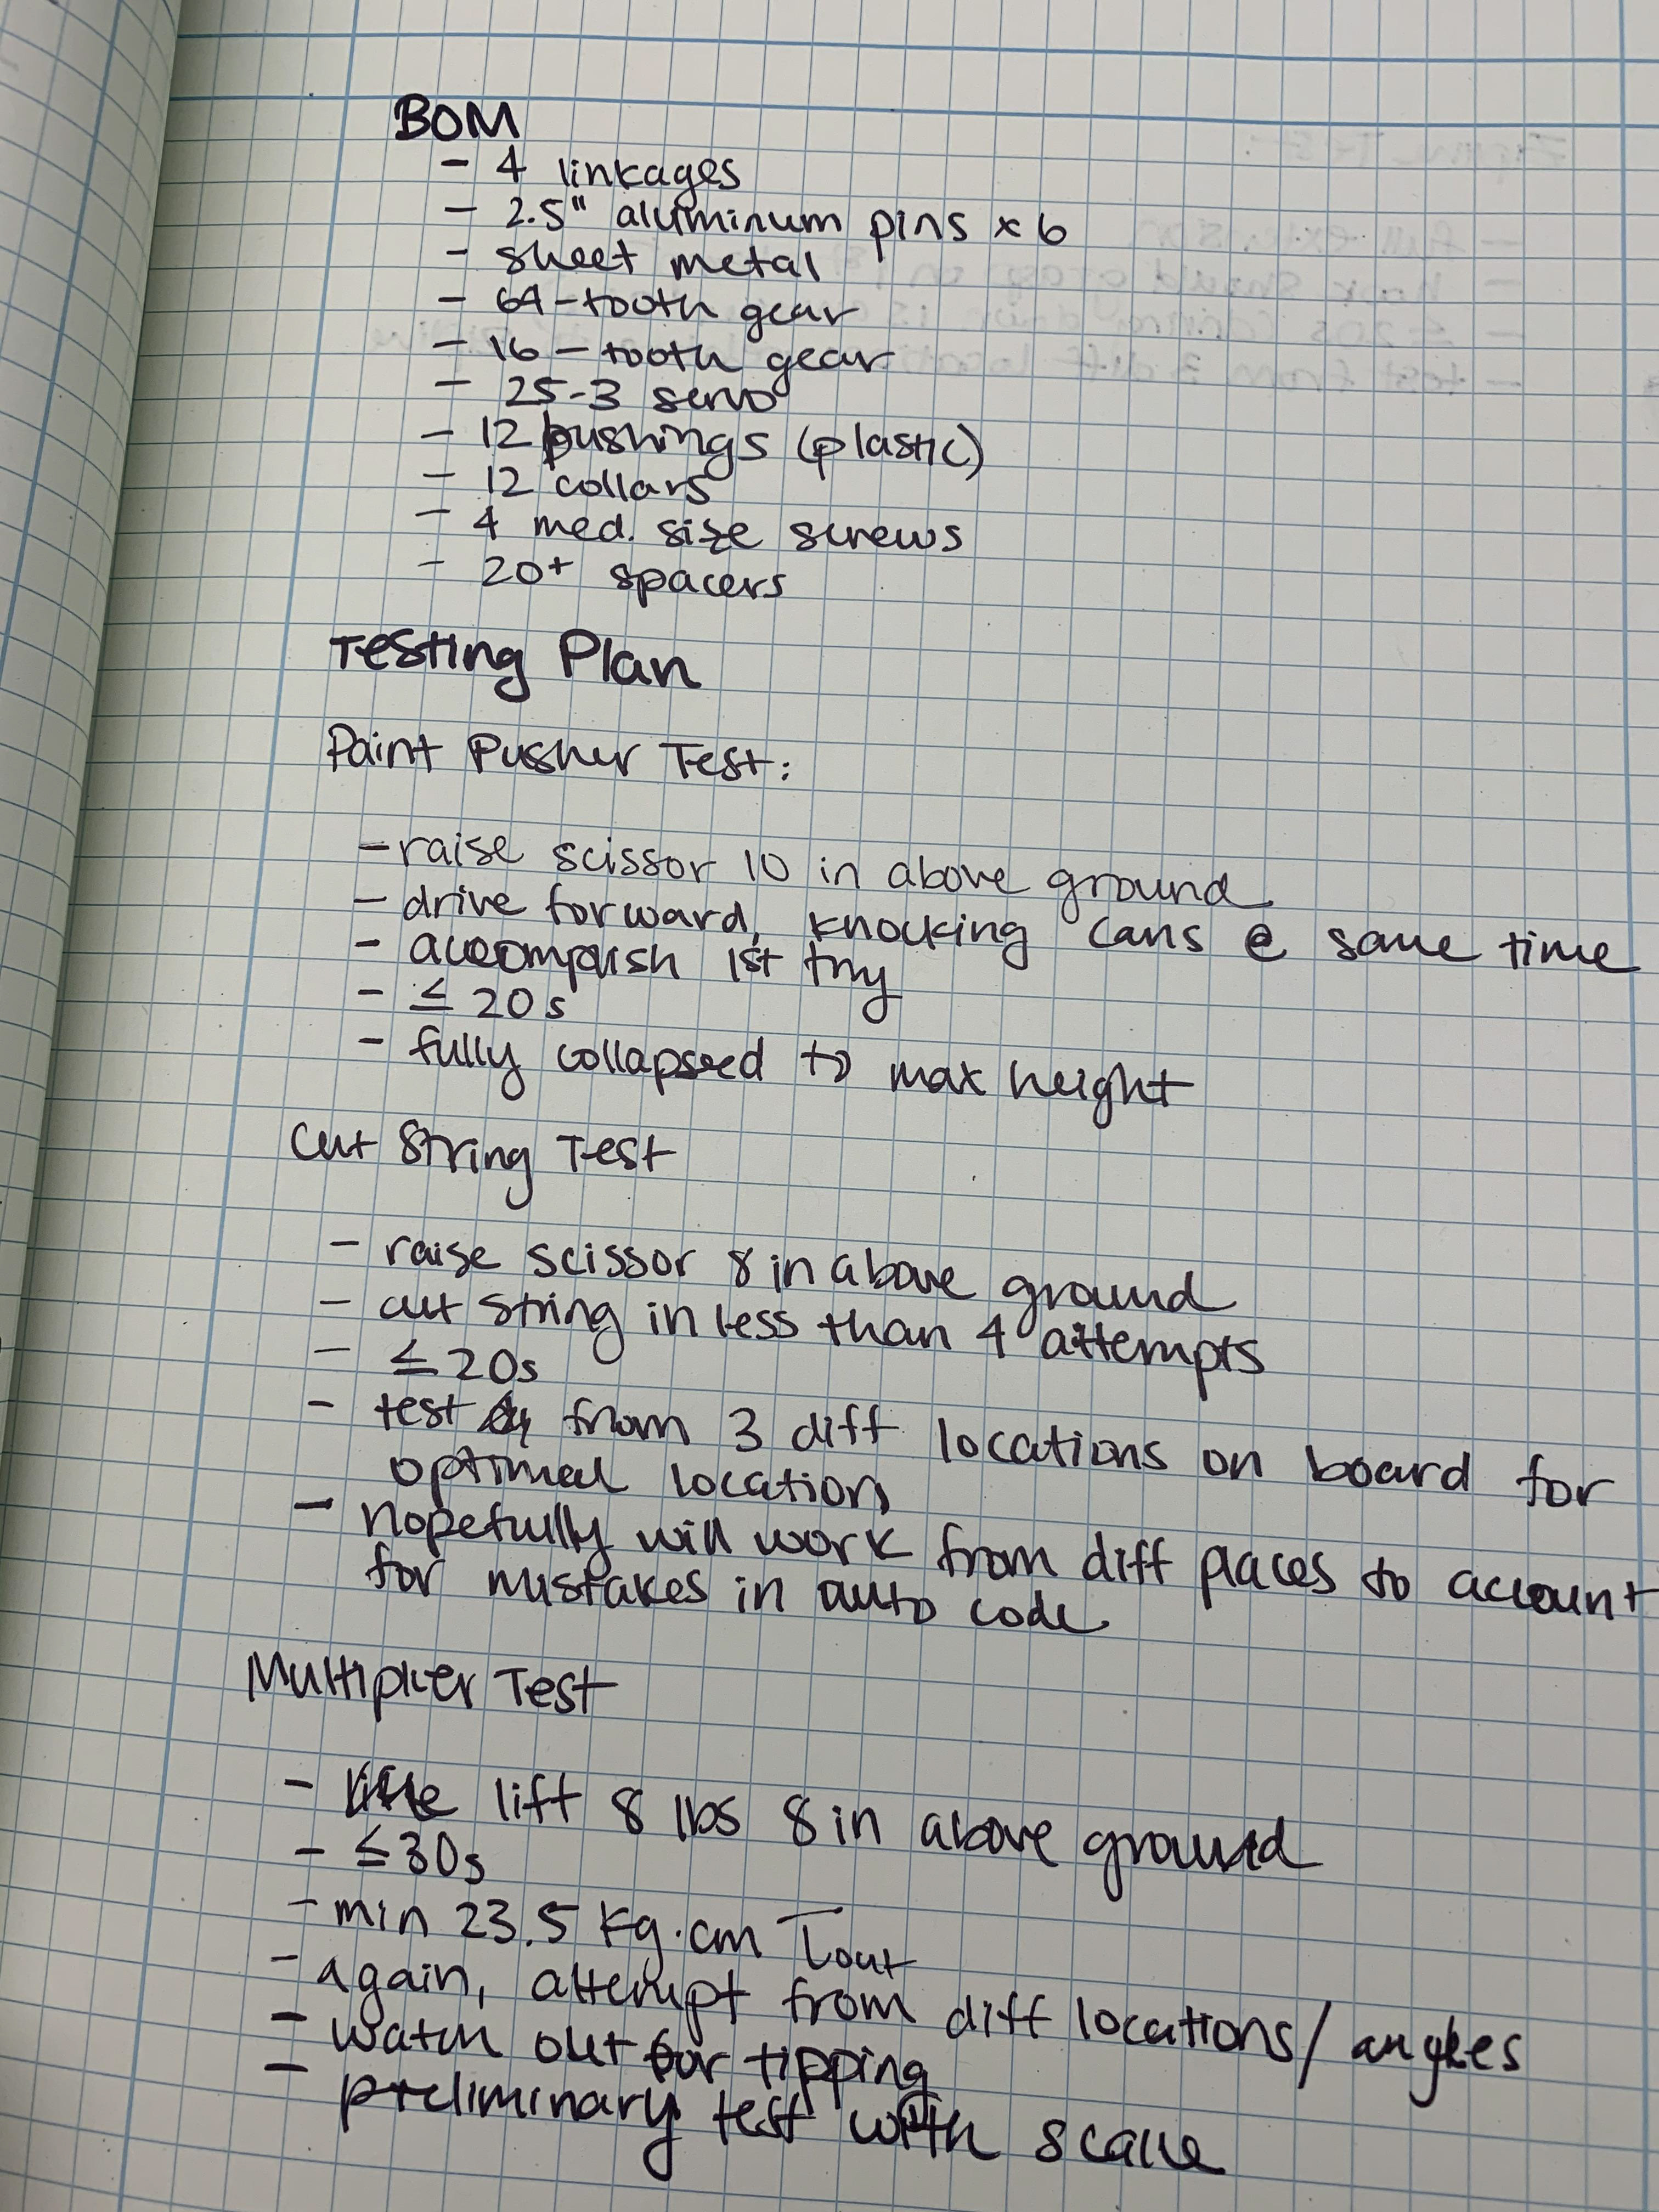 BOM
- 4 linkages
- 2.5" aluminum pins x 6
- sheet metal
- 64-tooth gear
- 16-tooth gear
- 25-3 servo
- 12 bushings (plastic)
- 12 collars
- 4 med. size screws
- 20+ spacers
Testing Plan
Paint Pusher Test:
- raise scissor 10 in above ground
- drive forward, knocking cans @ same time
- accomplish 1st try
- ≤ 20s
- fully collapsed to max height
Cut String Test
- raise scissor 8 in above ground
- cut string in less than 4 attempts
- ≤ 20s
- test from 3 diff locations on board for
optimal location
- hopefully will work from diff places to account
for mistakes in auto code
Multiplier Test
- lift 8 lbs 8 in above ground
- ≤ 30s
- min 23.5 kg·cm Tout
- again, attempt from diff locations/ angles
- watch out for tipping
- preliminary test with scale